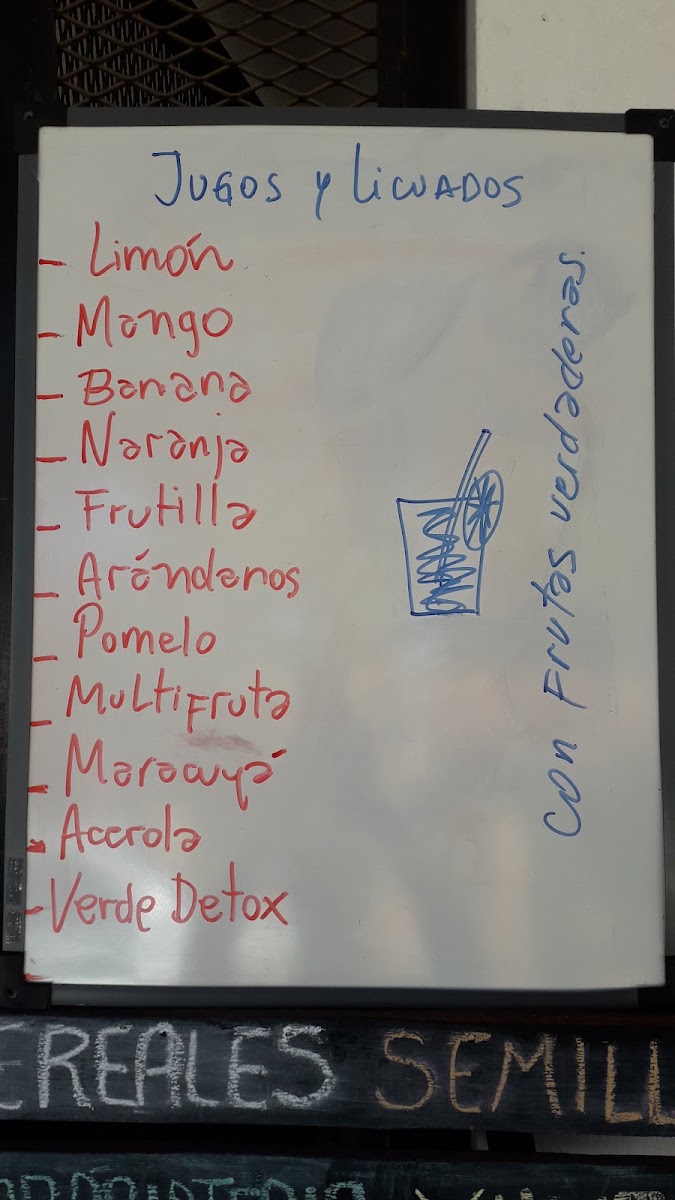 JUGOS y LICUADOS
- Limón
- Mango
- Banana
- Naranja
- Frutilla
- Arándanos
- Pomelo
- Multifruta
- Maracuyá
- Acerola
- Verde Detox
con Frutas verdaderas.
EREALES SEMILL